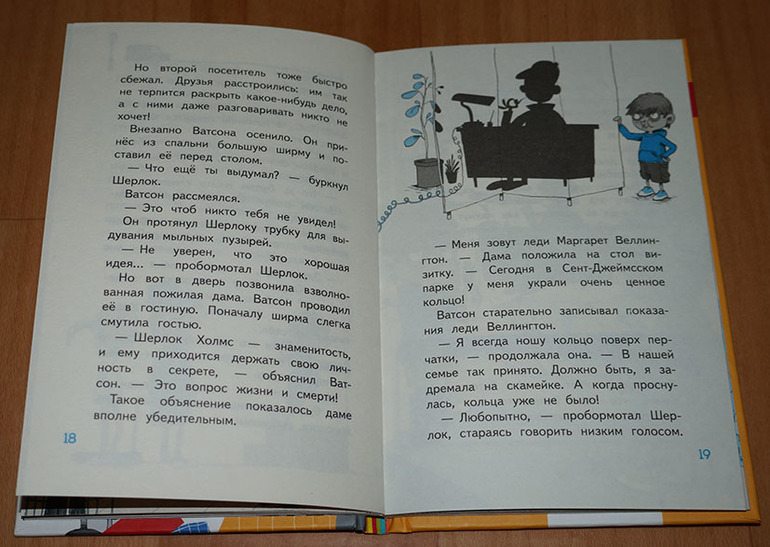 Но второй посетитель тоже быстро
сбежал. Друзья расстроились: им так
не терпится раскрыть какое-нибудь дело,
а с ними даже разговаривать никто не
хочет!
Внезапно Ватсона осенило. Он при-
нёс из спальни большую ширму и по-
ставил её перед столом.
— Что ещё ты выдумал? — буркнул
Шерлок.
Ватсон рассмеялся.
— Это чтоб никто тебя не увидел!
Он протянул Шерлоку трубку для вы-
дувания мыльных пузырей.
— Не уверен, что это хорошая
идея... — пробормотал Шерлок.
Но вот в дверь позвонила взволно-
ванная пожилая дама. Ватсон проводил
её в гостиную. Поначалу ширма слегка
смутила гостью.
— Шерлок Холмс — знаменитость,
и ему приходится держать свою лич-
ность в секрете, — объяснил Ват-
сон. — Это вопрос жизни и смерти!
Такое объяснение показалось даме
вполне убедительным.
18
— Меня зовут леди Маргарет Веллин-
гтон. — Дама положила на стол ви-
зитку. — Сегодня в Сент-Джеймсском
парке у меня украли очень ценное
кольцо!
Ватсон старательно записывал показа-
ния леди Веллингтон.
— Я всегда ношу кольцо поверх пер-
чатки, — продолжала она. — В нашей
семье так принято. Должно быть, я за-
дремала на скамейке. А когда просну-
лась, кольца уже не было!
— Любопытно, — пробормотал Шер-
лок, стараясь говорить низким голосом.
19